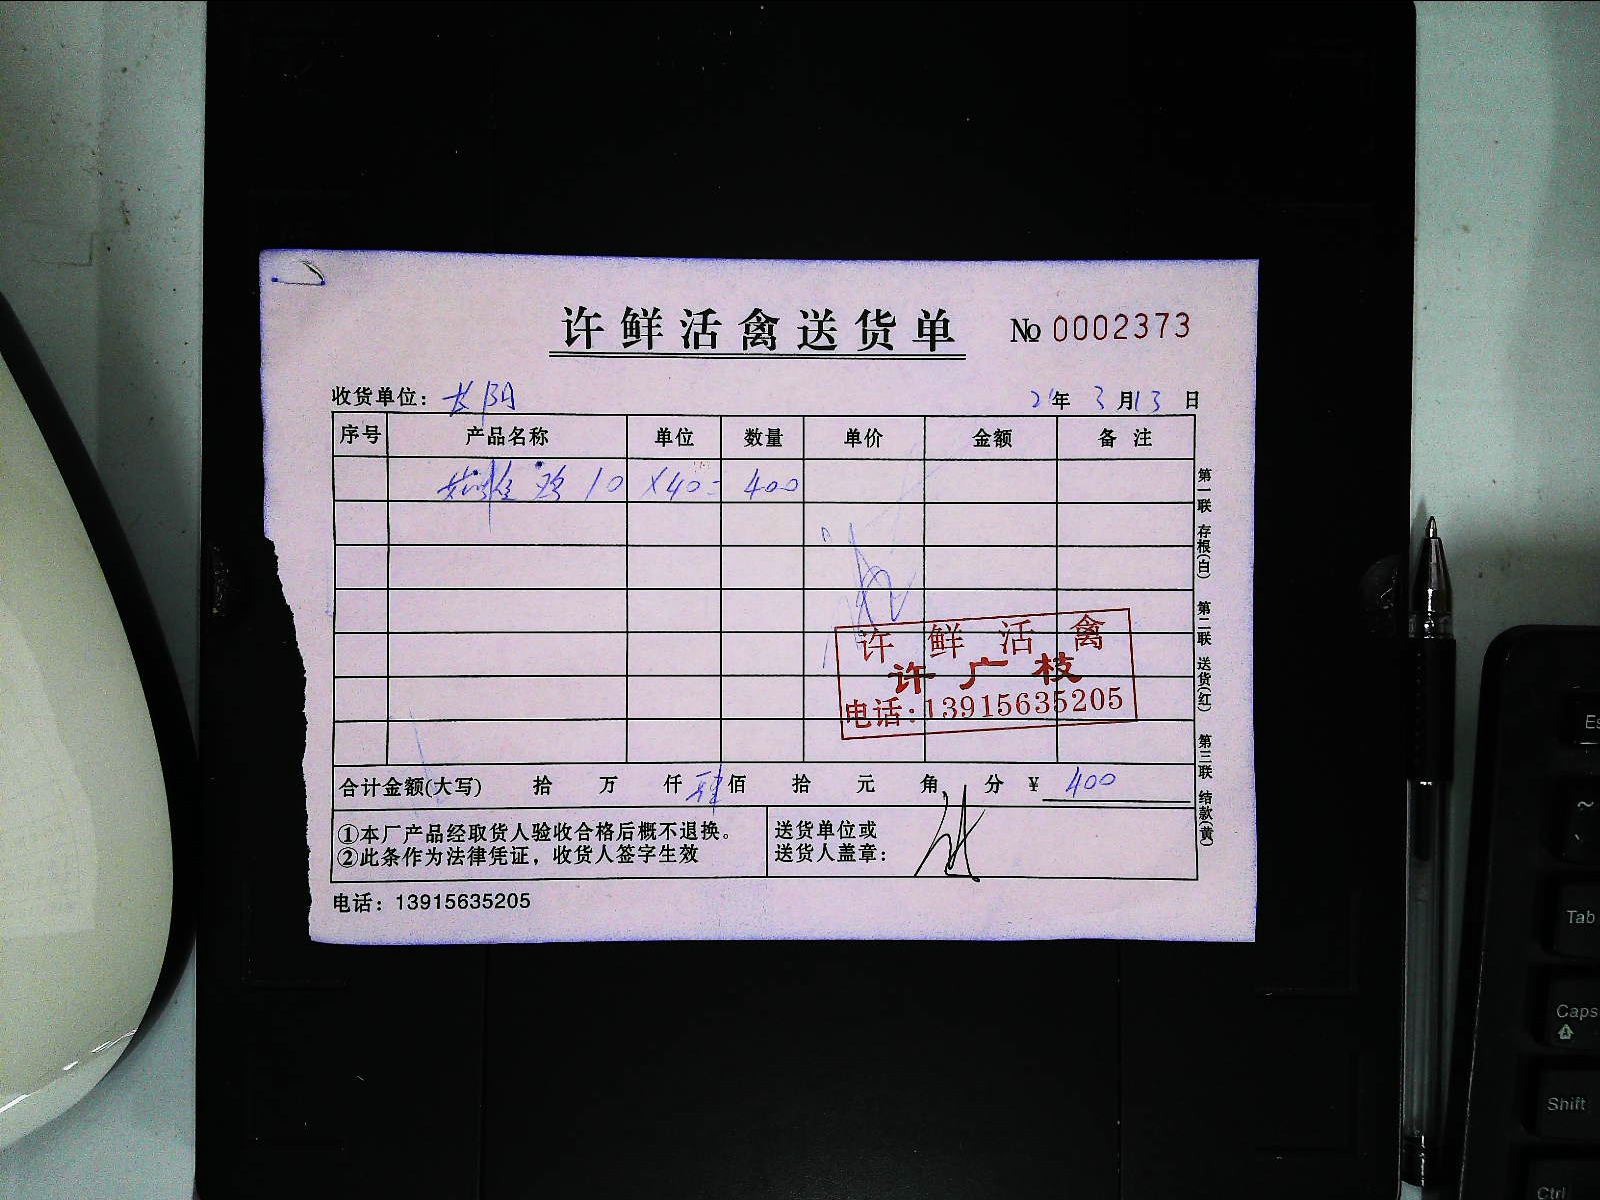 许鲜活禽送货单 № 0002373
收货单位： 长阳 21年 3月13日
序号 产品名称 单位 数量 单价 金额 备注
鸡 10 ×40= 400
许鲜活禽
许广枝
电话:13915635205
合计金额(大写) 拾 万 仟 肆佰 拾 元 角 分 ¥ 400
①本厂产品经取货人验收合格后概不退换。
②此条作为法律凭证，收货人签字生效
送货单位或
送货人盖章：
电话：13915635205
第一联 存根(白) 第二联 送货(红) 第三联 结款(黄)
Tab
Caps
Shift
Ctrl